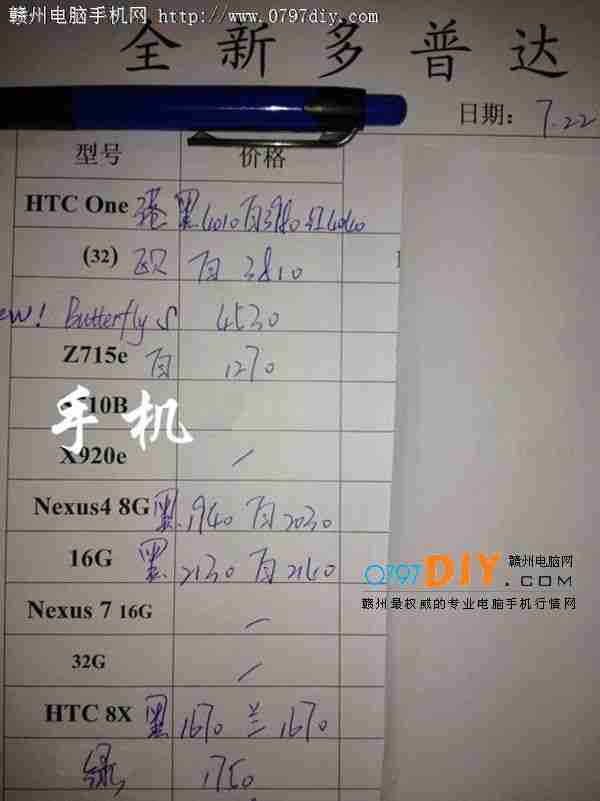 赣州电脑手机网 http://www.0797diy.com/
全新多普达
日期: 7.22
型号 价格
HTC One 港 黑4010 白3980 红4040
(32) 欧 白 3810
ew! Butterfly S 4530
Z715e 白 1270
10B
手机
X920e /
Nexus4 8G 黑 1940 白2030
16G 黑 2130 白2140
0797DIY.COM 赣州电脑网
赣州最权威的专业电脑手机行情网
Nexus 7 16G /
32G /
HTC 8X 黑 1670 兰 1670
绿 1750